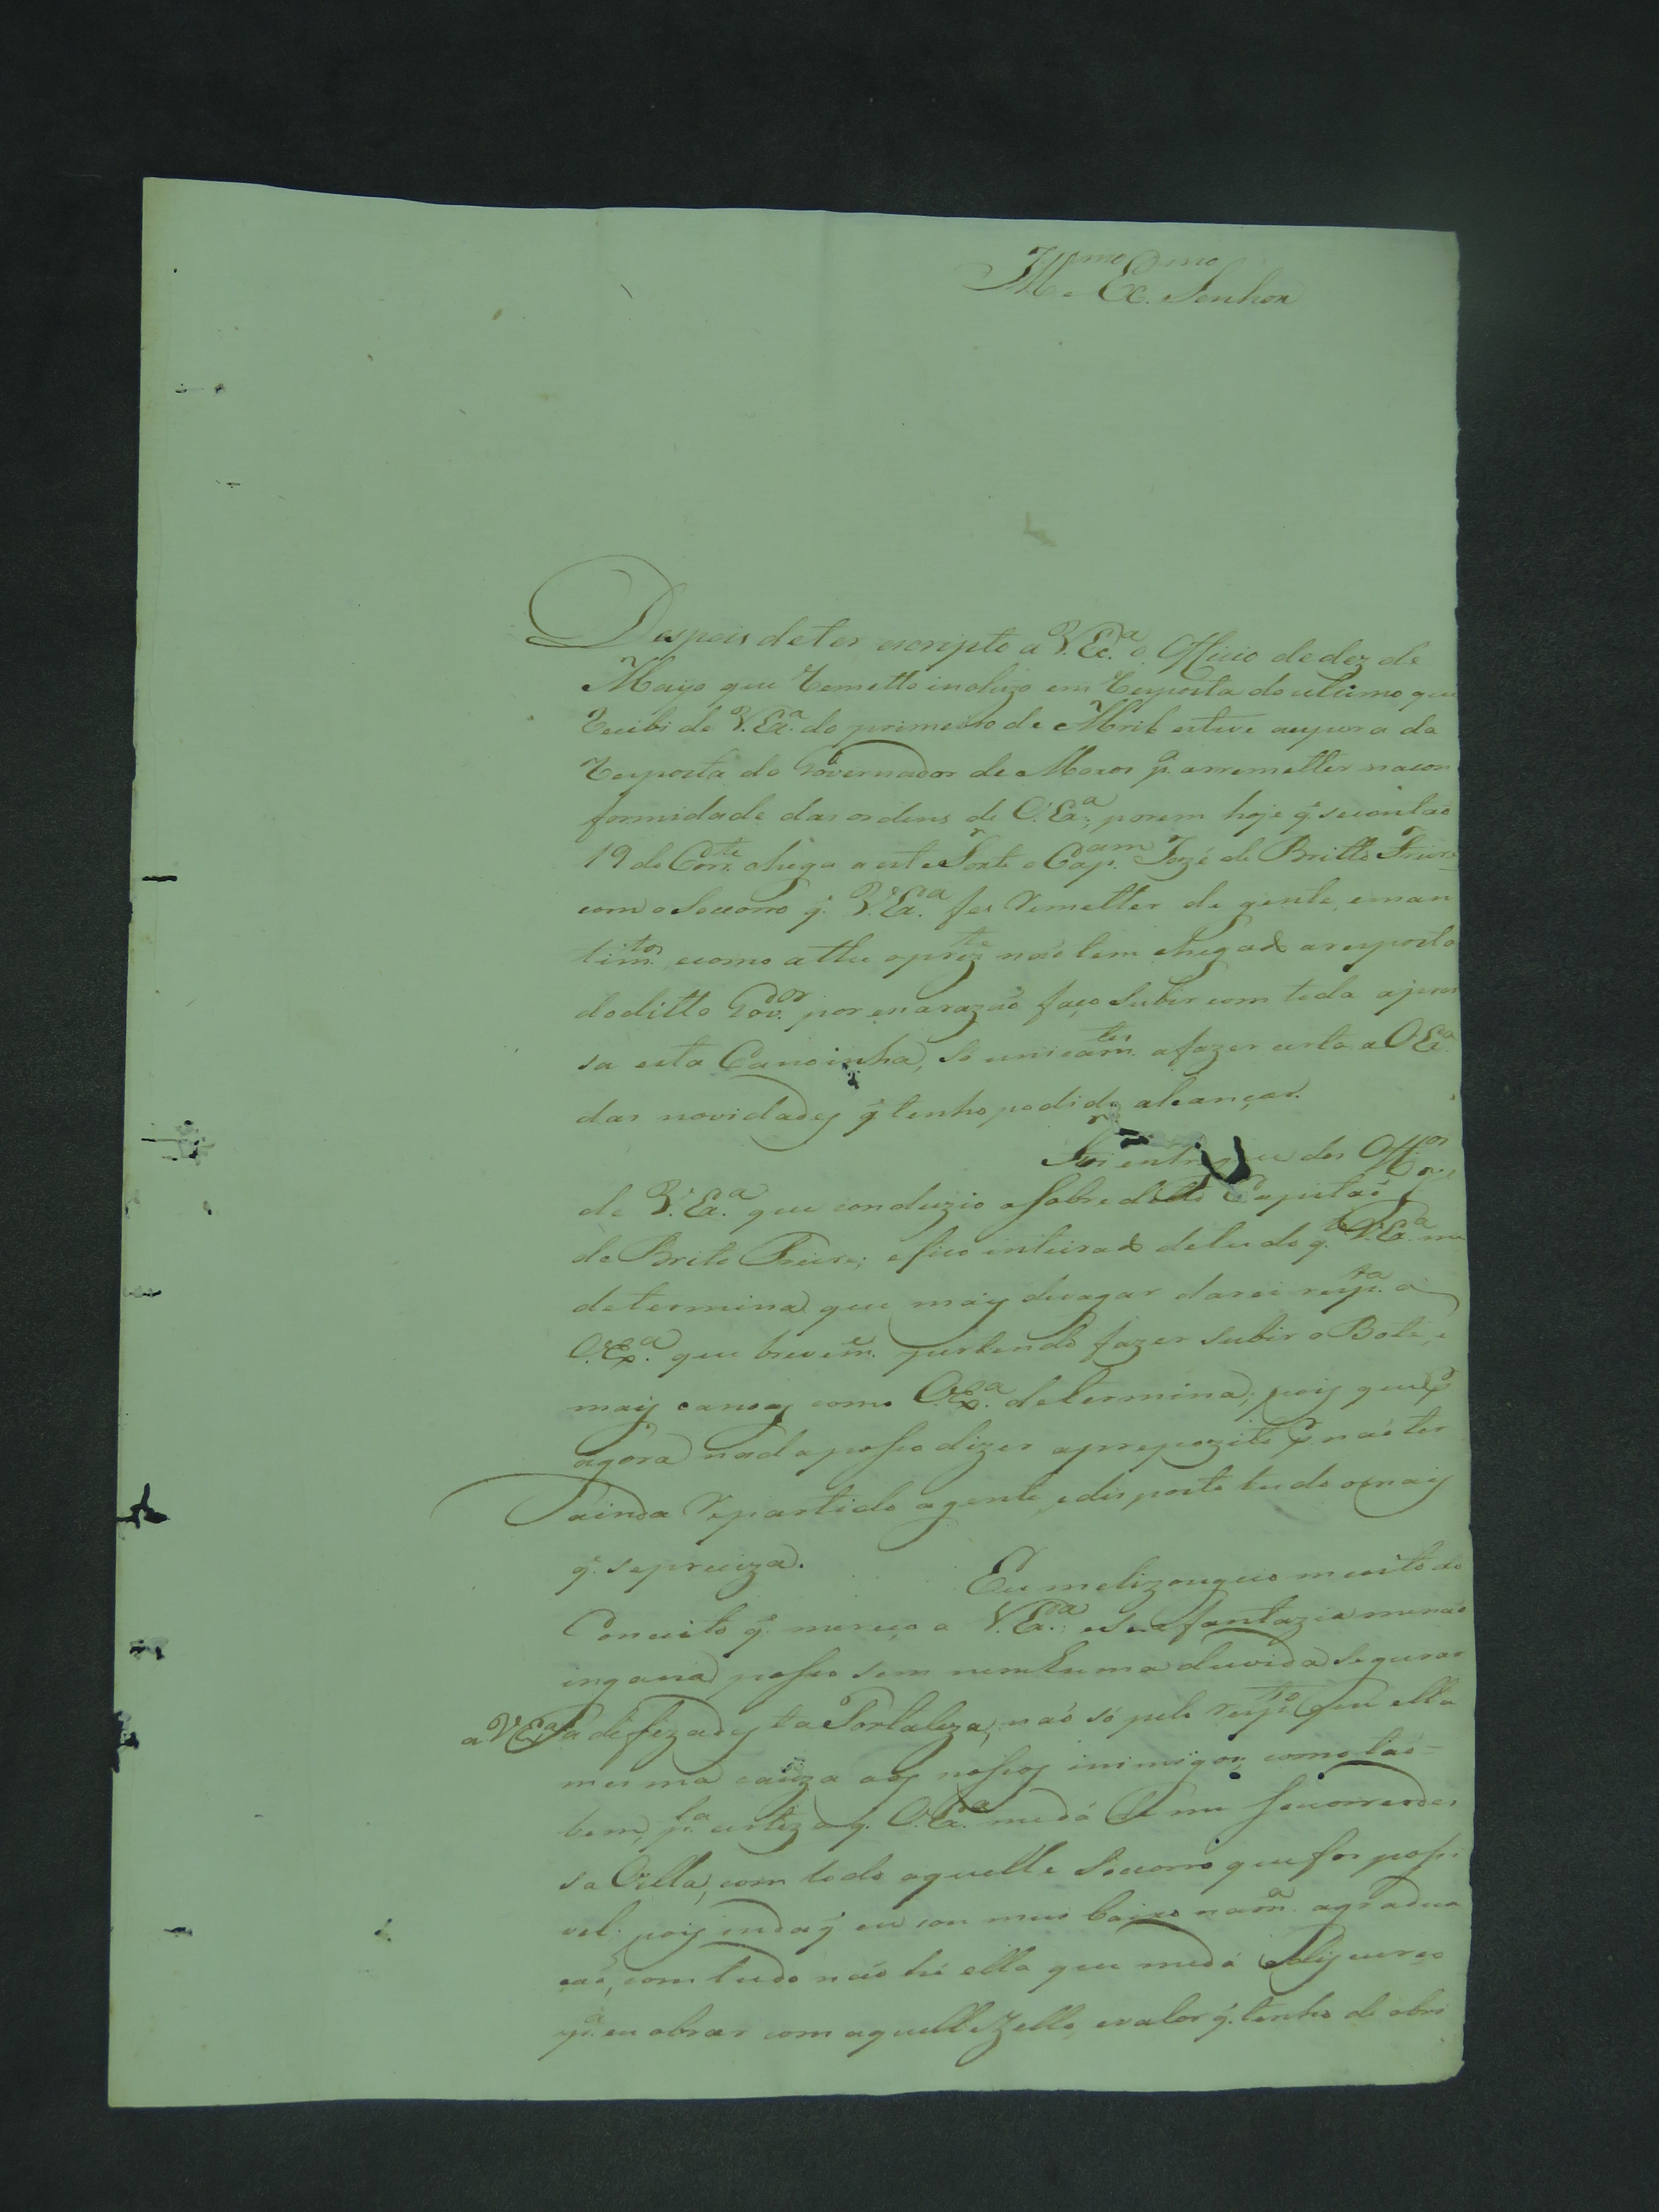 Ill.mo Ex.mo Senhor
Despois deter escripto a V. Ex.a o Officio de dez de
Mayo que Remetto incluzo em Resposta do ultimo que
Recibi de V. Ex.a do primeiro de Abril estive aespera da
Resposta do Governador de Moxos p.a arremetter nacon
formidade das ordens de V. Ex.a, porem hoje q̃ secontaõ
19 do Corr.te chega a este Forte o Cap.am Jozé de Britto Freire
com o Socorro q̃ V. Ex.a fes Remetter de gente, eman
tim.tos ecomo athe aprez.te naõ tem chegado aresposta
doditto Gov.dor por esnarazaõ faço subir com toda apres
sa esta Canoinha, só unicam.te afazer certo a V. Ex.a
das novidades q̃ tenho podido alcançar.
Foi entregue dos Off.os
de V. Ex.a que conduzio o Sobreditto Capitaõ
de Brito Freire; efico inteirado detudo q̃ V. Ex.a me
determina que mais devagar darei resp.ta a
V. Ex.a que brevem.e pertendo fazer subir o Bote, e
mais canoas como V. Ex.a determina; pois que p.r
agora nada posso dizer aprepozito p.r naõ ter
ainda Repartido agente, edisposto tudo omais
q̃ sepreciza.
Eu melizongeio muito do
Conceito q̃ mereço a V. Ex.a: esea fantazia menaõ
ingana posso sem nenhuma duvida segurar
a V. Ex.a a defezadesta Fortaleza, naõ só pelo resp.to que ella
mesma cauza aos nossos inimigos, como taõ=
bem, p.la certeza q̃ V. Ex.a medá de me Socorrerdes
sa Villa, com todo aquelle Socorro que for possi
vel: pois indaq̃ eu sou meio baixo nam.a agradua
çaõ, com tudo naõ hé ella que medá
p.a eu obrar com aquelle Zello, evalor q̃ tenho de obri